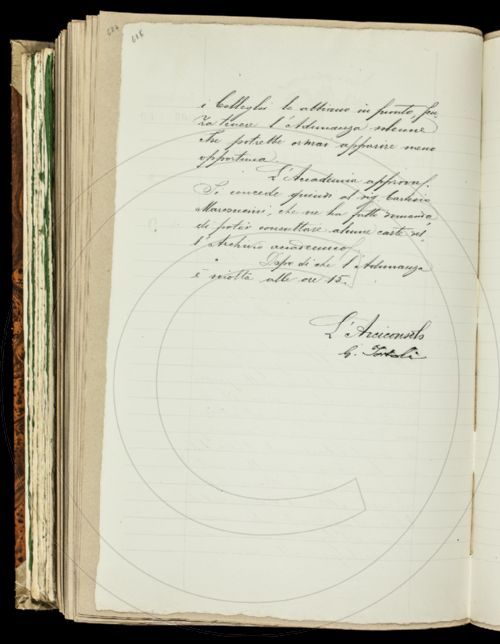 686
i Colleghi le abbiano in pronto, sen
za tenere l'Adunanza solenne
che potrebbe ormai apparire meno
opportuna.
L'Accademia approva.
Si concede quindi al sig.
Marconcini, che ne ha fatto domanda
di poter consultare alcune carte del
l'Archivio accademico.
Dopo di che l'Adunanza
è sciolta alle ore 15.
L'Arciconsolo
G. Tortoli